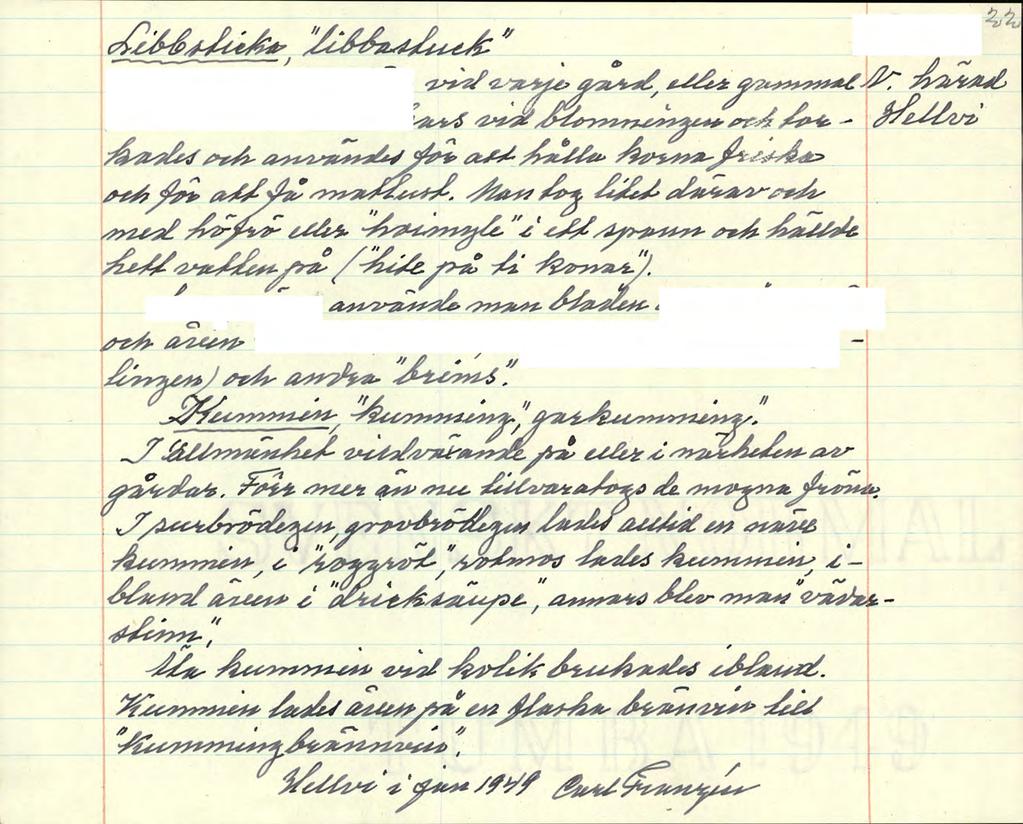 22
Libbsticka, "libbastuck"
vid varje gård, eller gammal N. härad
vid blomningen och tor- Hellvi
kades och användes för att hålla korna friska
och för att få matlust. Man tog litet därav och
med höfrö eller "hoimyle" i ett spann och hällde
hett vatten på ("hite på ti konar").
använde man bladen
och även -
lingen) och andra "breims".
Kummin, "kumming", garkumming".
I allmänhet vildväxande på eller i närheten av
gårdar. Förr mer än nu tillvaratogs de mogna fröna.
I surbrödegen, grovbrödegen lades alltid en näve
kummin, i "roggröt", rotmos lades kummin, i-
bland även i "dricksäupe", annars blev man "vädar-
stinn".
Äta kummin vid kolik brukades ibland.
Kummin lades även på en flaska bränvin till
"Kummingbrännvin".
Hellvi i jan 1949 Carl Franzén